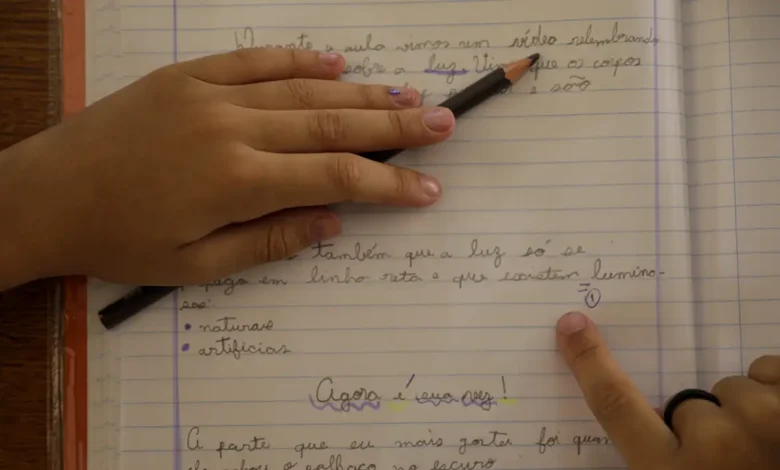 Durante a aula vimos um vídeo relembrando
sobre a luz. que os corpos
e são
também que a luz só se
em linha reta e que existem lumino-
sos:
= ①
• naturais
• artificias
Agora é sua vez!
A parte que eu mais gostei foi quan
o palhaço no escuro